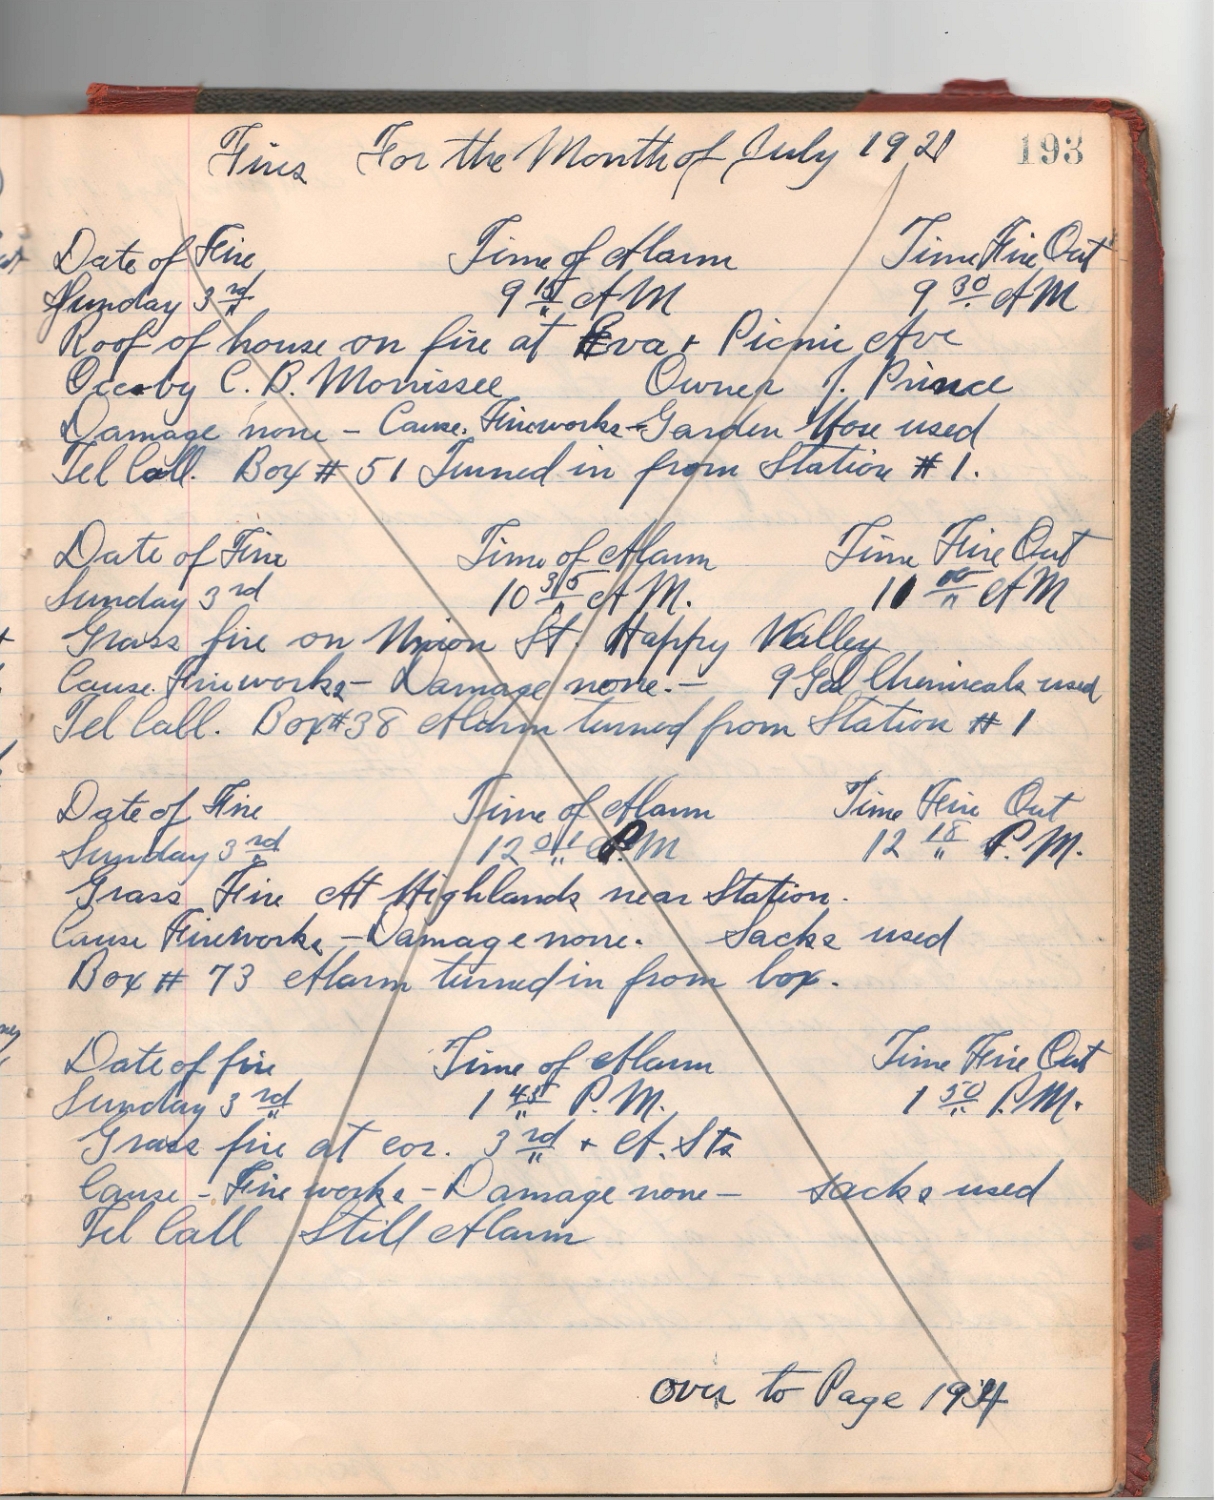 Fires For the Month of July 1921 193
Date of Fire Time of Alarm Time Fire Out
Sunday 3rd 9 15 AM 9 30 AM
Roof of house on fire at Eva + Picnic Ave
Occ by C. B. Morrissee Owner J. Prince
Damage none - Cause. Fireworks - Garden Hose used
Tel Call. Box # 51 Turned in from Station # 1.
Date of Fire Time of Alarm Time Fire Out
Sunday 3rd 10 35 AM. 11 00 AM
Grass fire on Union St. Happy Valley
Cause. Fireworks - Damage none. - 9 Gal Chemicals used
Tel Call. Box #38 Alarm turned from Station # 1
Date of Fire Time of Alarm Time Fire Out
Sunday 3rd 12 01 P.M 12 18 P.M.
Grass Fire At Highlands near Station.
Cause Fireworks - Damage none. Sacks used
Box # 73 Alarm turned in from box.
Date of fire Time of Alarm Time Fire Out
Sunday 3rd 1 45 P.M. 1 50 P.M.
Grass fire at cor. 3rd + A. Sts
Cause - Fireworks - Damage none - sacks used
Tel Call Still Alarm
over to Page 194